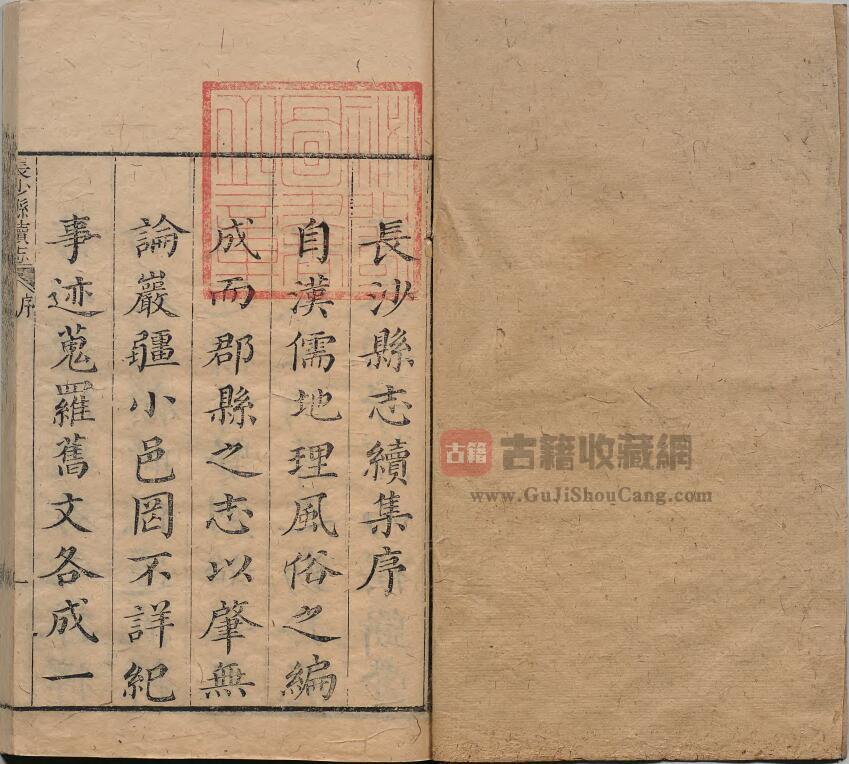 長沙縣志續集序
自漢儒地理風俗之編
成而郡縣之志以肇無
論巖疆小邑罔不詳紀
事迹蒐羅舊文各成一
長沙縣續志
序
古籍
古籍收藏網
www.GuJiShouCang.com